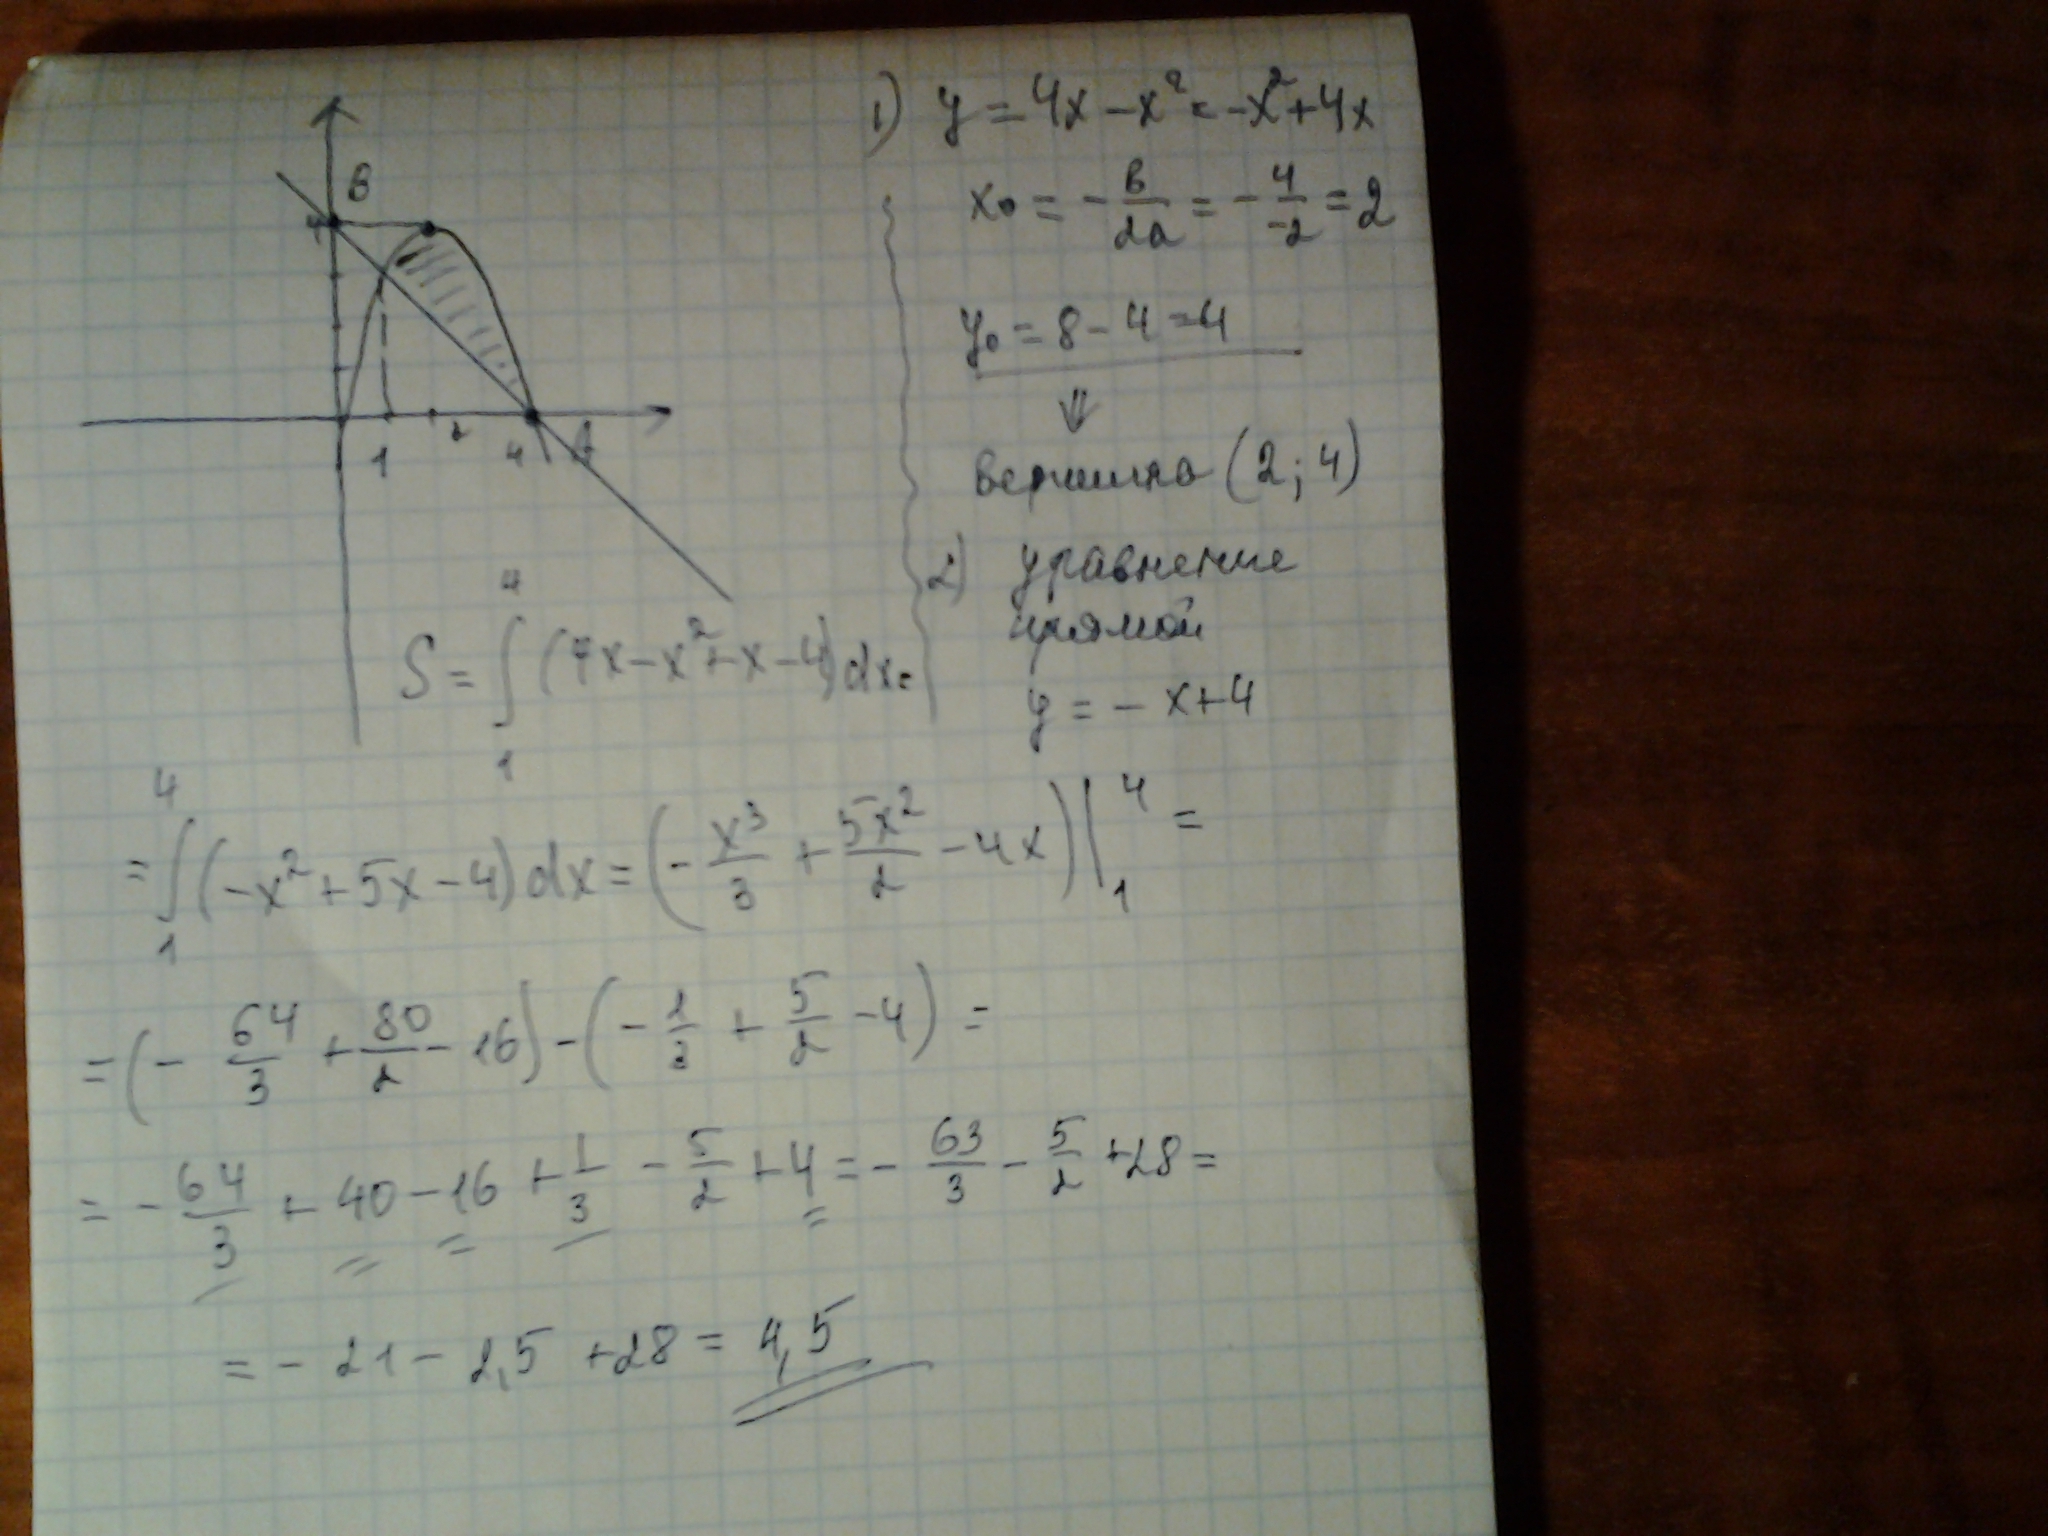 1) y = 4x - x² = -x² + 4x
x₀ = - в/2a = - 4/-2 = 2
y₀ = 8 - 4 = 4
⇓
вершина (2; 4)
2) уравнение
прямой
y = - x + 4
B
4
1 2 4 A
S = ∫₁⁴ (4x - x² + x - 4) dx =
= ∫₁⁴ (-x² + 5x - 4) dx = (- x³/3 + 5x²/2 - 4x) |₁⁴ =
= (- 64/3 + 80/2 - 16) - (- 1/3 + 5/2 - 4) =
= - 64/3 + 40 - 16 + 1/3 - 5/2 + 4 = - 63/3 - 5/2 + 28 =
= - 21 - 2,5 + 28 = 4,5